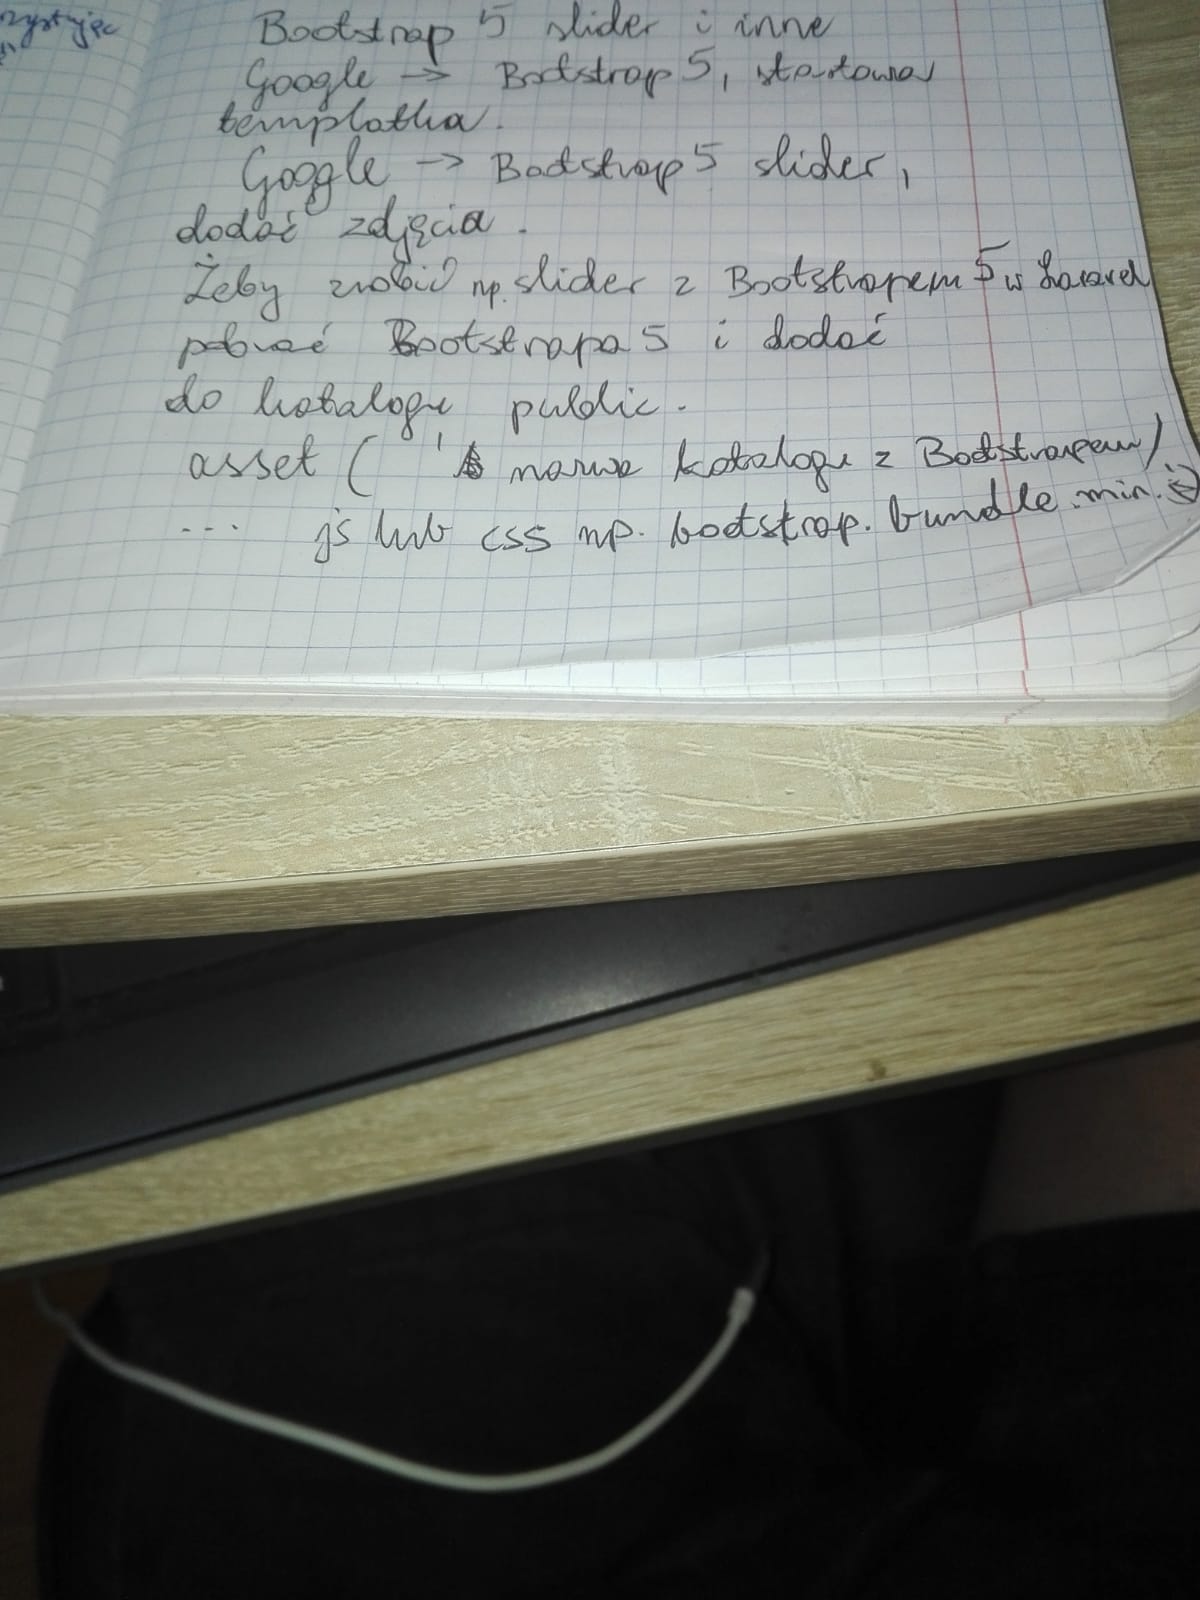 zystując
Bootstrap 5 slider i inne
Google → Bootstrap 5, startowa
templatka.
Google → Bootstrap 5 slider,
dodać zdjęcia.
Żeby zrobić np. slider z Bootstrapem 5 w Laravel
pobrać Bootstrapa 5 i dodać
do katalogu public.
asset ( ' nazwa katalogu z Bootstrapem/
... js lub css np. bootstrap.bundle.min.js